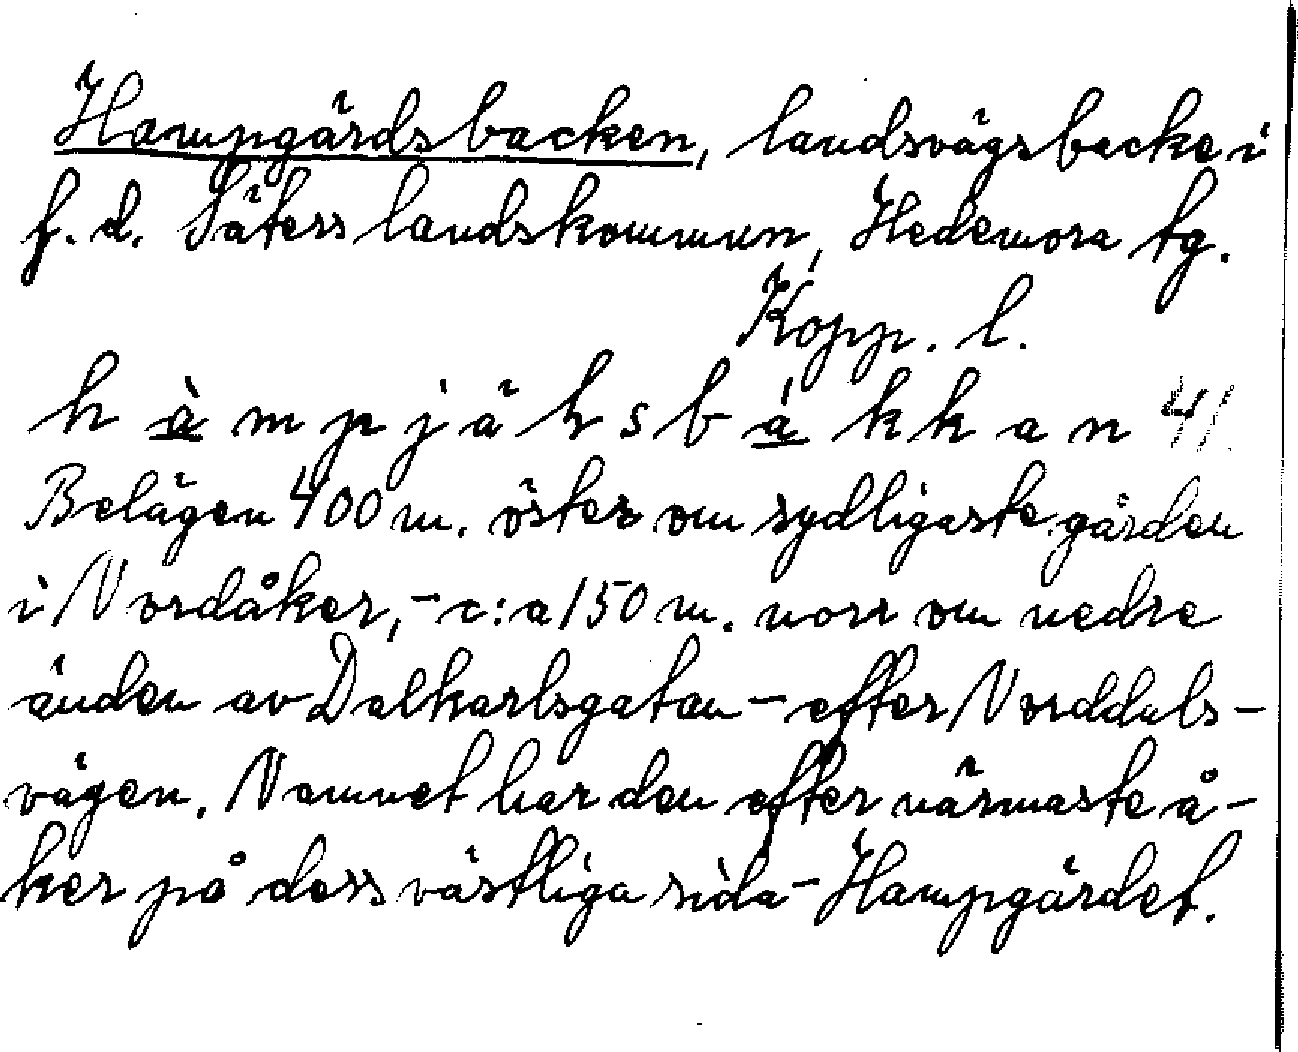 Hampgärdsbacken, landsvägsbacke i
f. d. Säters landskommun, Hedemora tg.
Kopp. l.
h à m p j ä h s b á k k a n 41
Belägen 400 m. öster om sydligaste gården
i Nordåker, - c:a 150 m. norr om nedre
änden av Dalkarlsgatan - efter Norddals-
vägen. Namnet har den efter närmaste å-
ker på dess västliga sida - Hampgärdet.